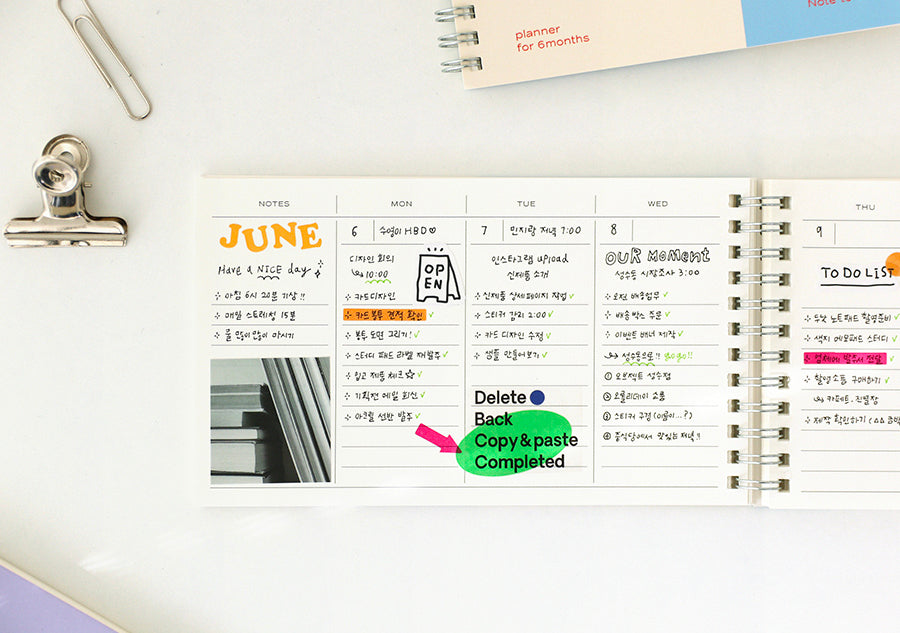 planner
for 6months
Note to
NOTES
MON
TUE
WED
THU
JUNE
Have a NICE day
아침 6시 20분 기상 !!
매일 스트레칭 15분
물 많이많이 마시기
6
수영이 HBD♡
디자인 회의
↳ 10:00
OPEN
카드디자인
카드봉투 견적 확인 ✓
봉투 도면 그리기! ✓
스터디 패드 라벨 재발주 ✓
입고 제품 체크☆ ✓
기획전 메일 회신 ✓
아크릴 선반 발주 ✓
7
민지랑 저녁 7:00
인스타그램 upload
신제품 소개
신제품 상세페이지 작업 ✓
스티커 감리 2:00 ✓
카드 디자인 수정 ✓
샘플 만들어보기 ✓
Delete
Back
Copy & paste
Completed
8
OUR MOMENT
성수동 시장조사 3:00
오전 배송업무 ✓
배송박스 주문 ✓
이벤트 배너 제작 ✓
↳ 성수동으로!! gogo!!
① 오브젝트 성수점
② 오롤리데이 쇼룸
③ 스티커 구경 (이름이...?)
④ 음식당에서 맛있는 저녁!!
9
TO DO LIST
노트패드 촬영준비 ✓
색지 메모패드 스터디 ✓
업체에 발주서 전달 ✓
촬영소품 구매하기 ✓
↳ 카페트, 진열장
제작 확인하기